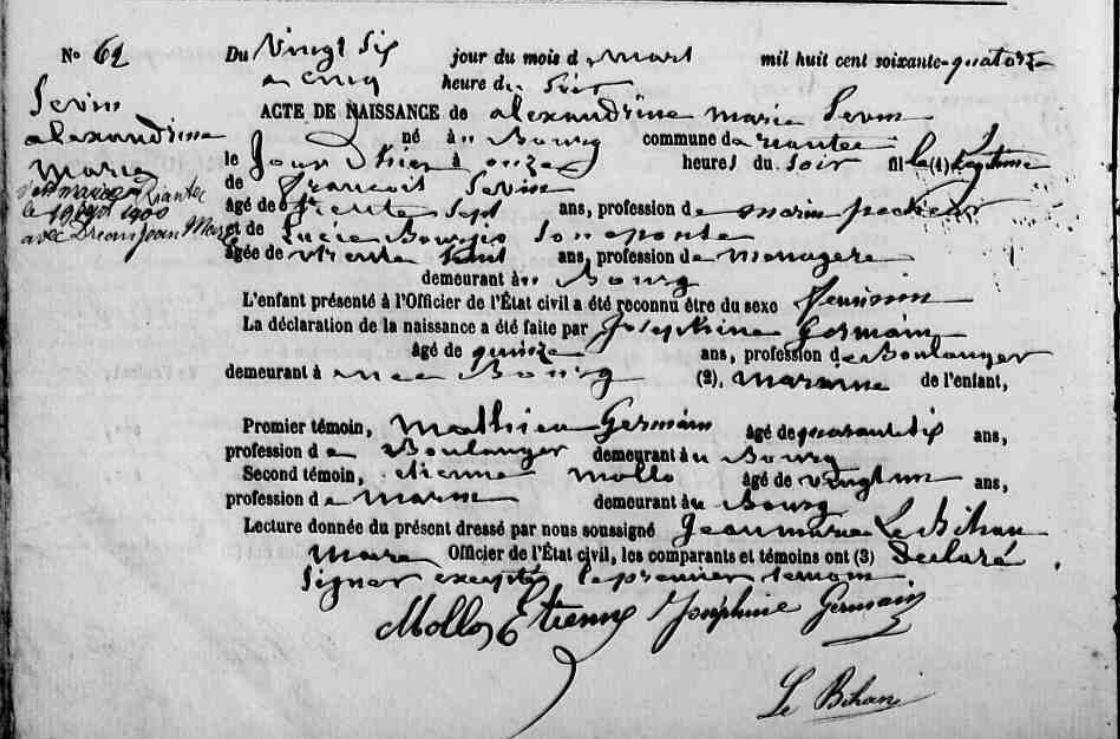 No 62
Du Vingt Six jour du mois de mars mil huit cent soixante-quatorze
a cinq heure du Soir
Sevin
alexandrine
Marie
ACTE DE NAISSANCE de alexandrine marie Sevin
né au Bourg commune de riantec
le Jour Dhier à onze heures du Soir fille (1) Legitime
de francois Sevin
âgé de trente Sept ans, profession de marin pecheur
et de Lucie Bourgio Son eponse
âgée de trente ans, profession de menagere
demeurant au Bourg
s'est mariée à Riantec
le 1900
avec Dréan Jean Marie
L'enfant présenté à l'Officier de l'État civil a été reconnu être du sexe feminin
La déclaration de la naissance a été faite par Josephine Germain
âgé de quinze ans, profession de Boulanger
demeurant à Bourg (2), maraine de l'enfant,
Premier témoin, Mathieu Germain âgé de quarante six ans,
profession de Boulanger demeurant au Bourg
Second témoin, etienne mollo âgé de vingt un ans,
profession de marin demeurant au Bourg
Lecture donnée du présent dressé par nous soussigné Jean marie Le Bihan
Maire Officier de l'État civil, les comparants et témoins ont (3) Declaré
Signer excepté le premier temoin
Mollo Etienne Joséphine Germain
Le Bihan